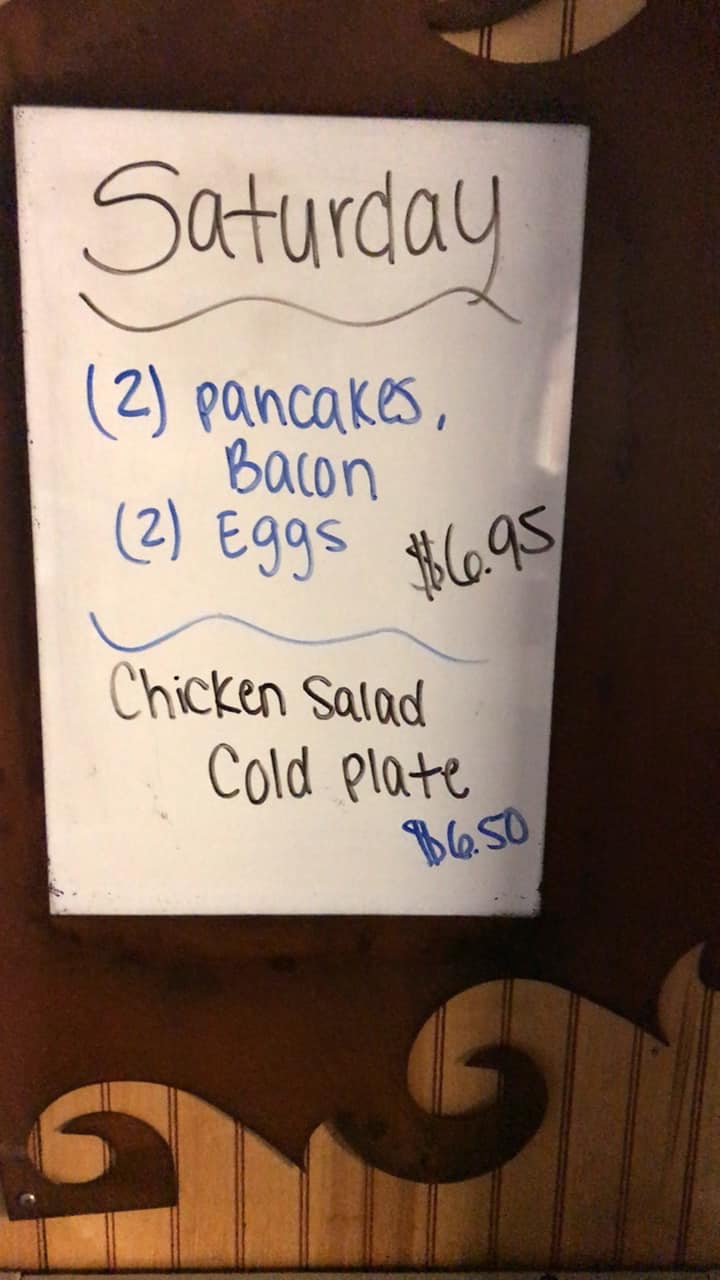 Saturday
(2) pancakes,
Bacon
(2) Eggs $6.95
Chicken Salad
Cold plate
$6.50